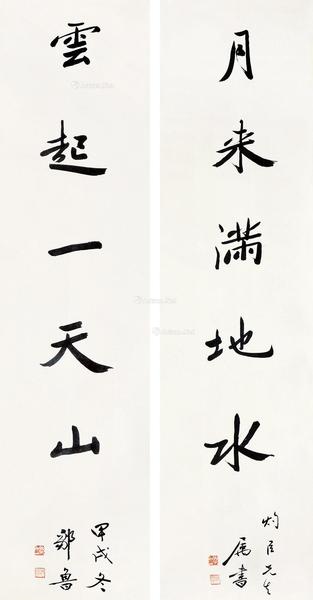 月来满地水
灼臣先生
属書
雲起一天山
甲戌冬
鄒魯